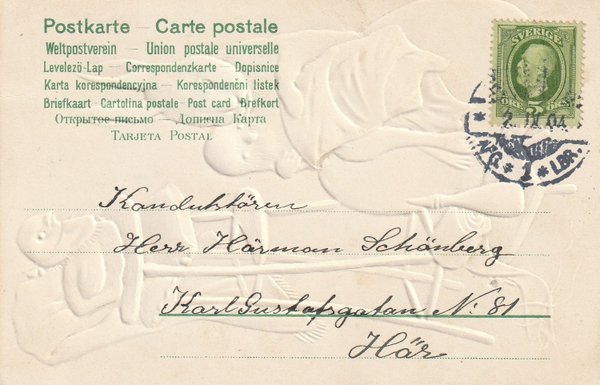 Postkarte – Carte postale
Weltpostverein – Union postale universelle
Levelező-Lap – Correspondenzkarte – Dopisnice
Karta korespondencyjna – Korespondenční listek
Briefkaart – Cartolina postale – Post card – Brefkort
Открытое письмо – Дописна Карта
TARJETA POSTAL
SVERIGE
5
2 IX 04
1 * LBR.
Konduktören
Herr Härman Schönberg
Karl Gustafsgatan N: 81
Här